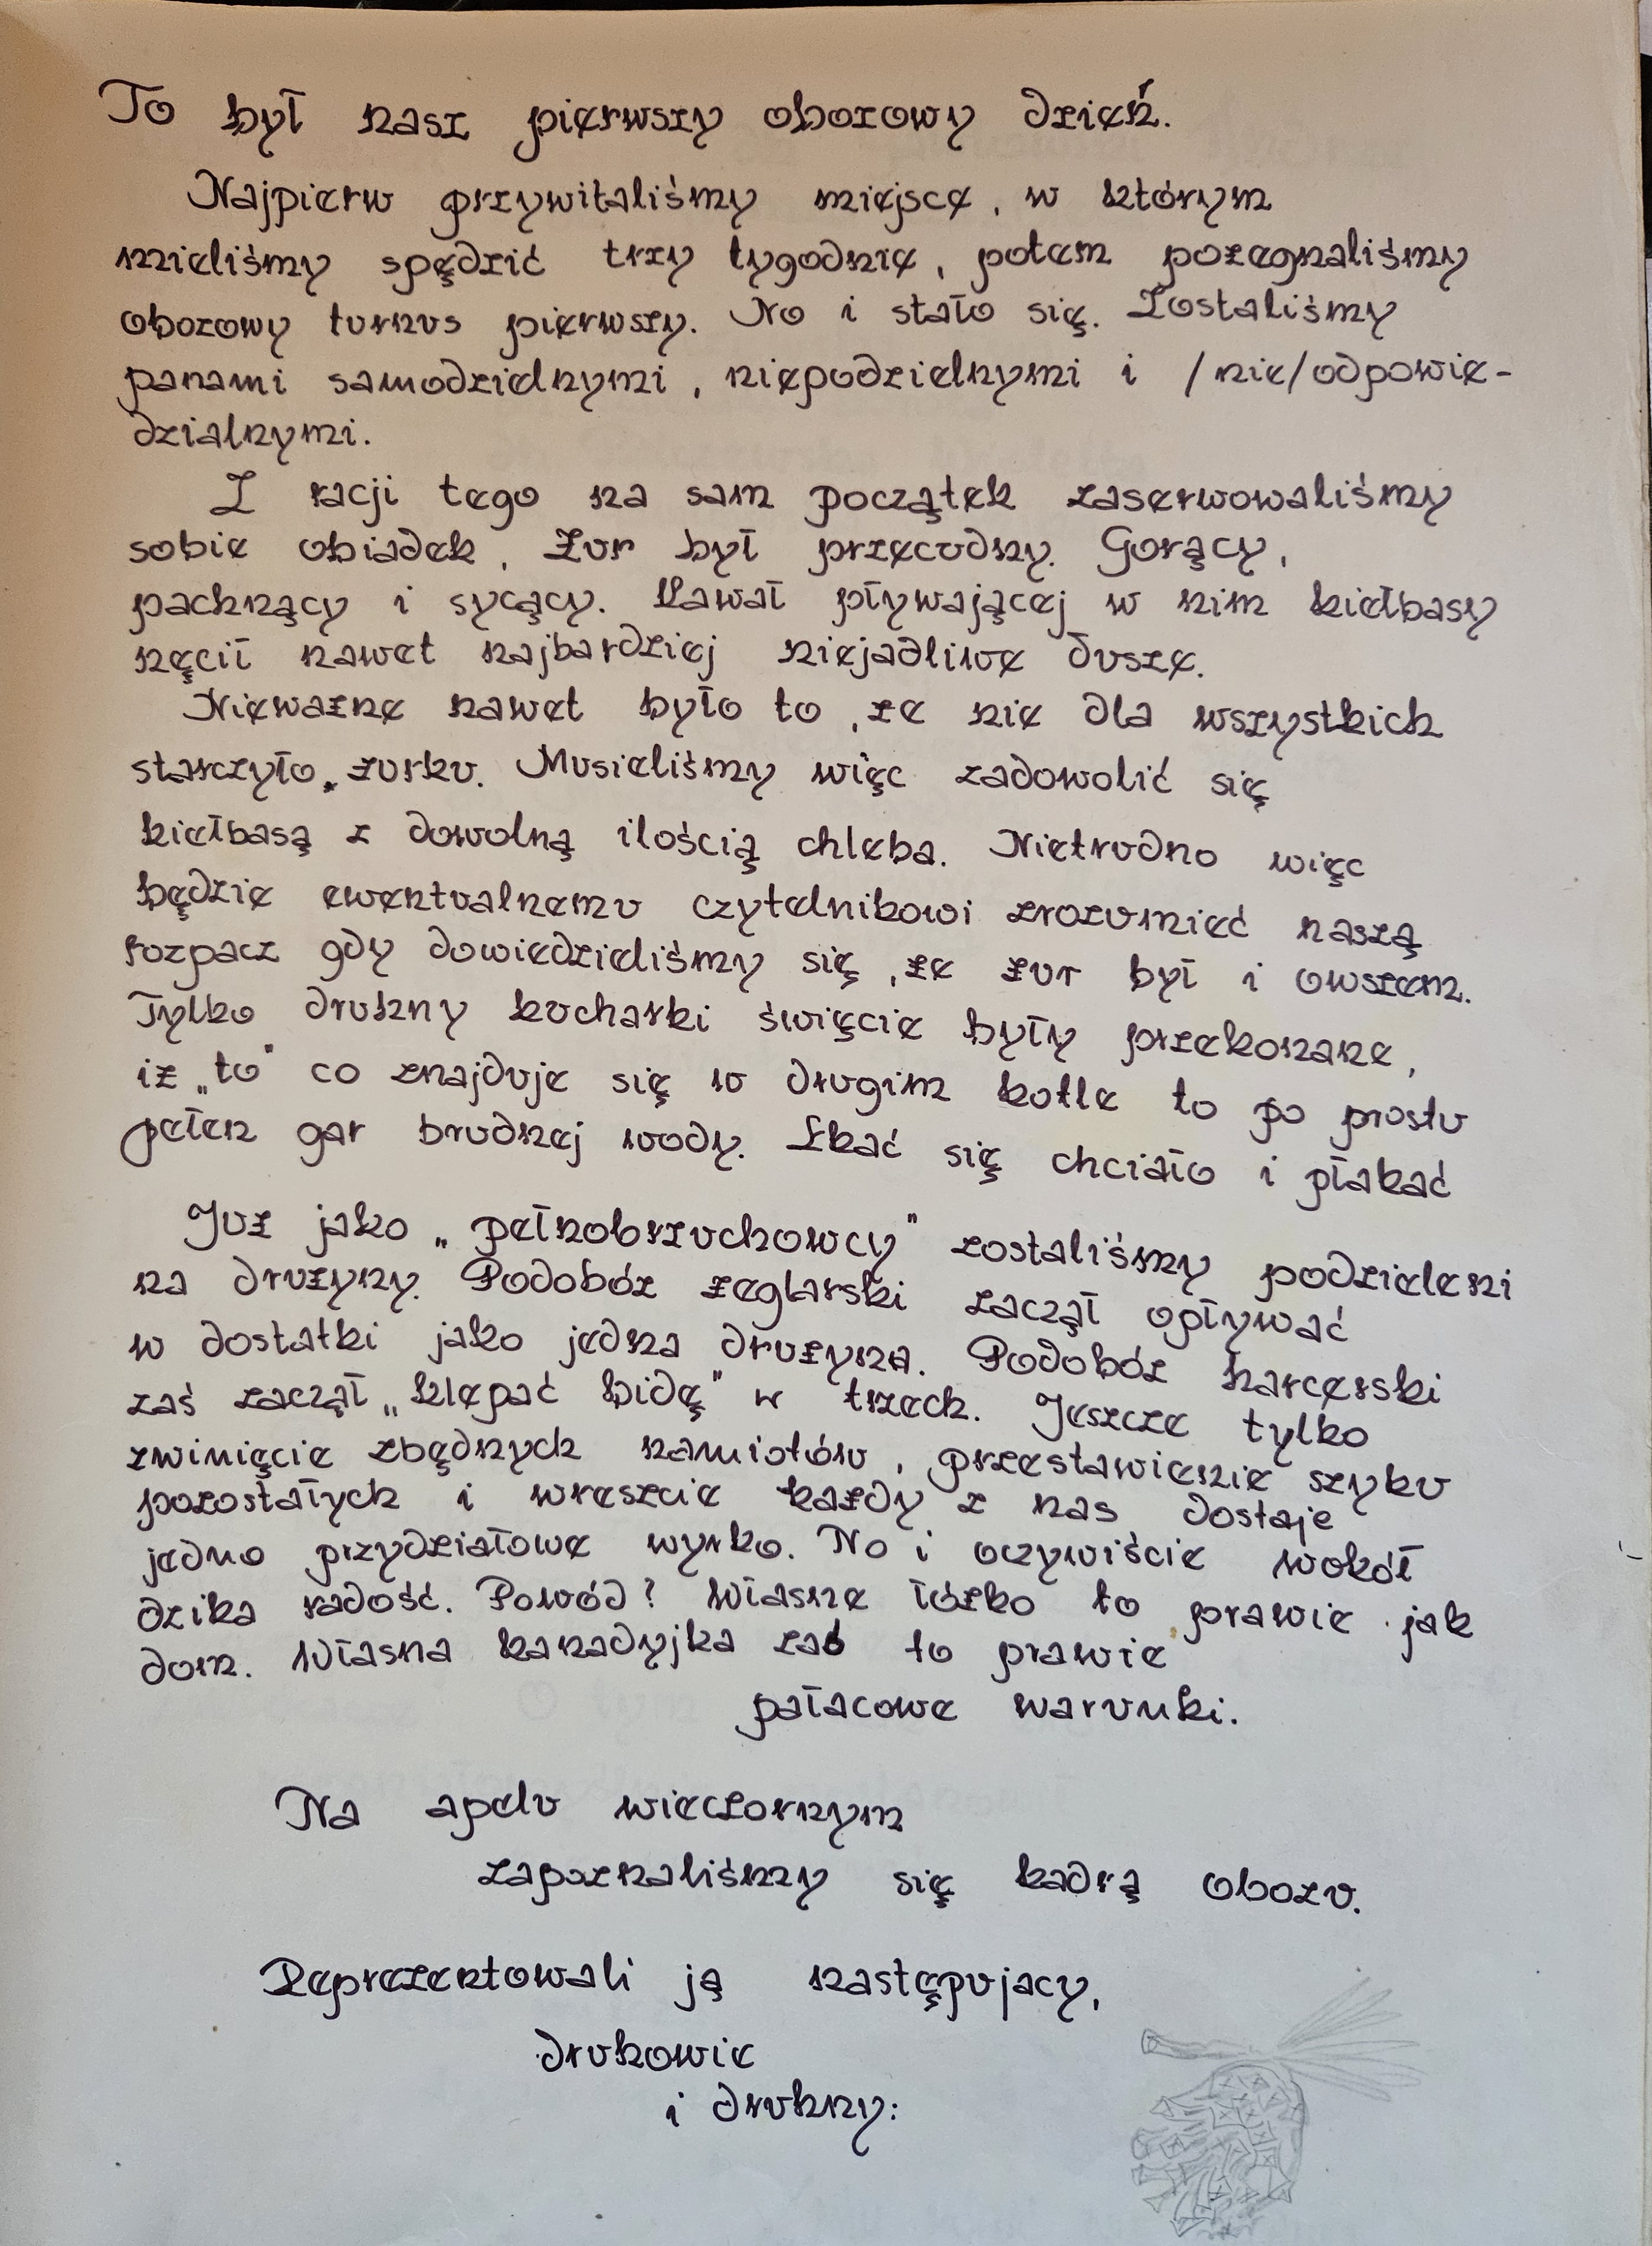 To był nasz pierwszy obozowy dzień.
Najpierw przywitaliśmy miejsce, w którym
mieliśmy spędzić trzy tygodnie, potem pożegnaliśmy
obozowy turnus pierwszy. No i stało się. Zostaliśmy
panami samodzielnymi, niepodzielnymi i /nie/odpowie-
dzialnymi.
Z racji tego na sam początek zaserwowaliśmy
sobie obiadek. Żur był przecudny. Gorący,
pachnący i sycący. Kawał pływającej w nim kiełbasy
nęcił nawet najbardziej niejadliwe dusze.
Nieważne nawet było to, że nie dla wszystkich
starczyło żurku. Musieliśmy więc zadowolić się
kiełbasą z dowolną ilością chleba. Nietrudno więc
będzie ewentualnemu czytelnikowi zrozumieć naszą
rozpacz gdy dowiedzieliśmy się, że żur był i owszem.
Tylko druhny kucharki święcie były przekonane,
iż „to" co znajduje się w drugim kotle to po prostu
pełen gar brudnej wody. Łkać się chciało i płakać
Już jako „pełnobrzuchowcy" zostaliśmy podzieleni
na drużyny. Podobóz żeglarski zaczął opływać
w dostatki jako jedna drużyna. Podobóz harcerski
zaś zaczął „klepać bidę" w trzech. Jeszcze tylko
zwinięcie zbędnych namiotów, przestawienie szyku
pozostałych i wreszcie każdy z nas dostaje
jedno przydziałowe wyrko. No i oczywiście wokół
dzika radość. Powód? Własne łóżko to prawie jak
dom. Własna kanadyjka zaś to prawie
pałacowe warunki.
Na apelu wieczornym
zapoznaliśmy się kadrą obozu.
Reprezentowali ją następujacy,
druhowie
i druhny: